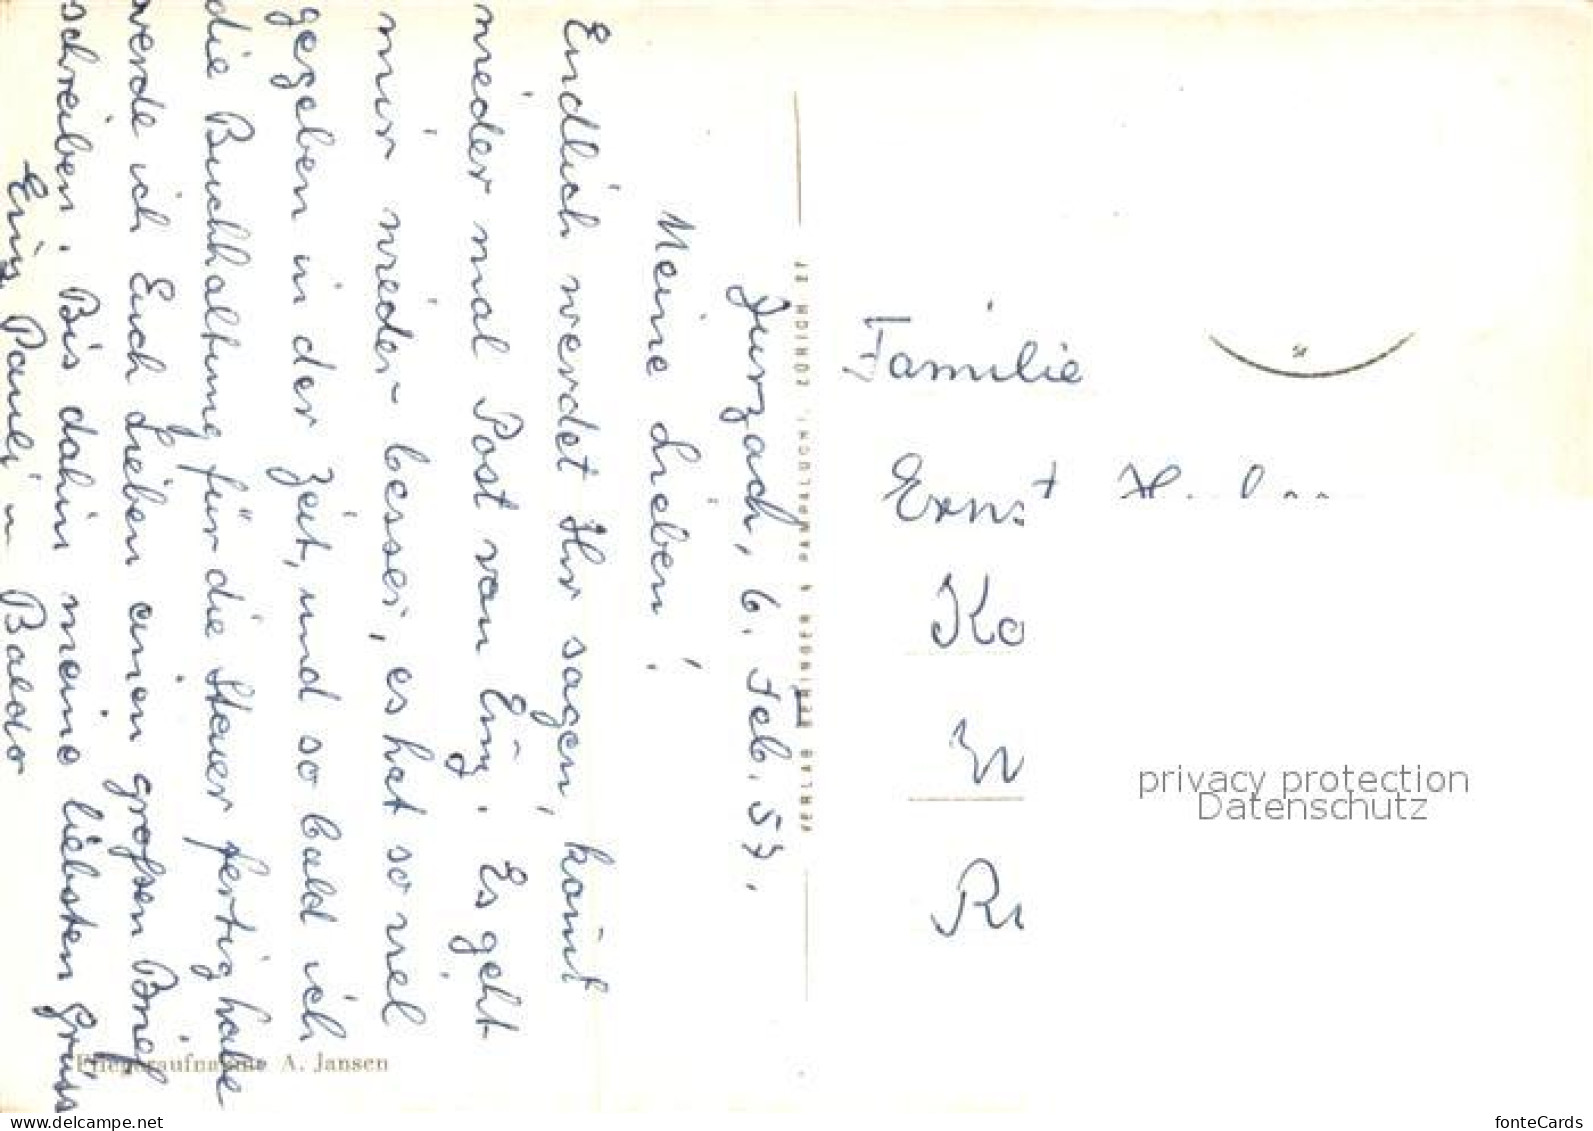 Zurzach, 6. Feb. 57.
Meine Lieben!
Endlich werdet Ihr sagen, kom̄t
wieder mal Post von Emy. Es geht
mir wieder besser, es hat so viel
gegeben in der Zeit, und so bald ich
die Buchhaltung für die Steuer fertig habe
werde ich Euch Lieben einen großen Brief
schreiben. Bis dahin meine liebsten Grüss
Emy, Pauli u
VERLAG BERINGER & PAMPALUCHI, ZÜRICH 27
Fliegeraufnahme A. Jansen
Familie
Ernst
Ko
Ri
privacy protection
Datenschutz
www.delcampe.net
fonteCards